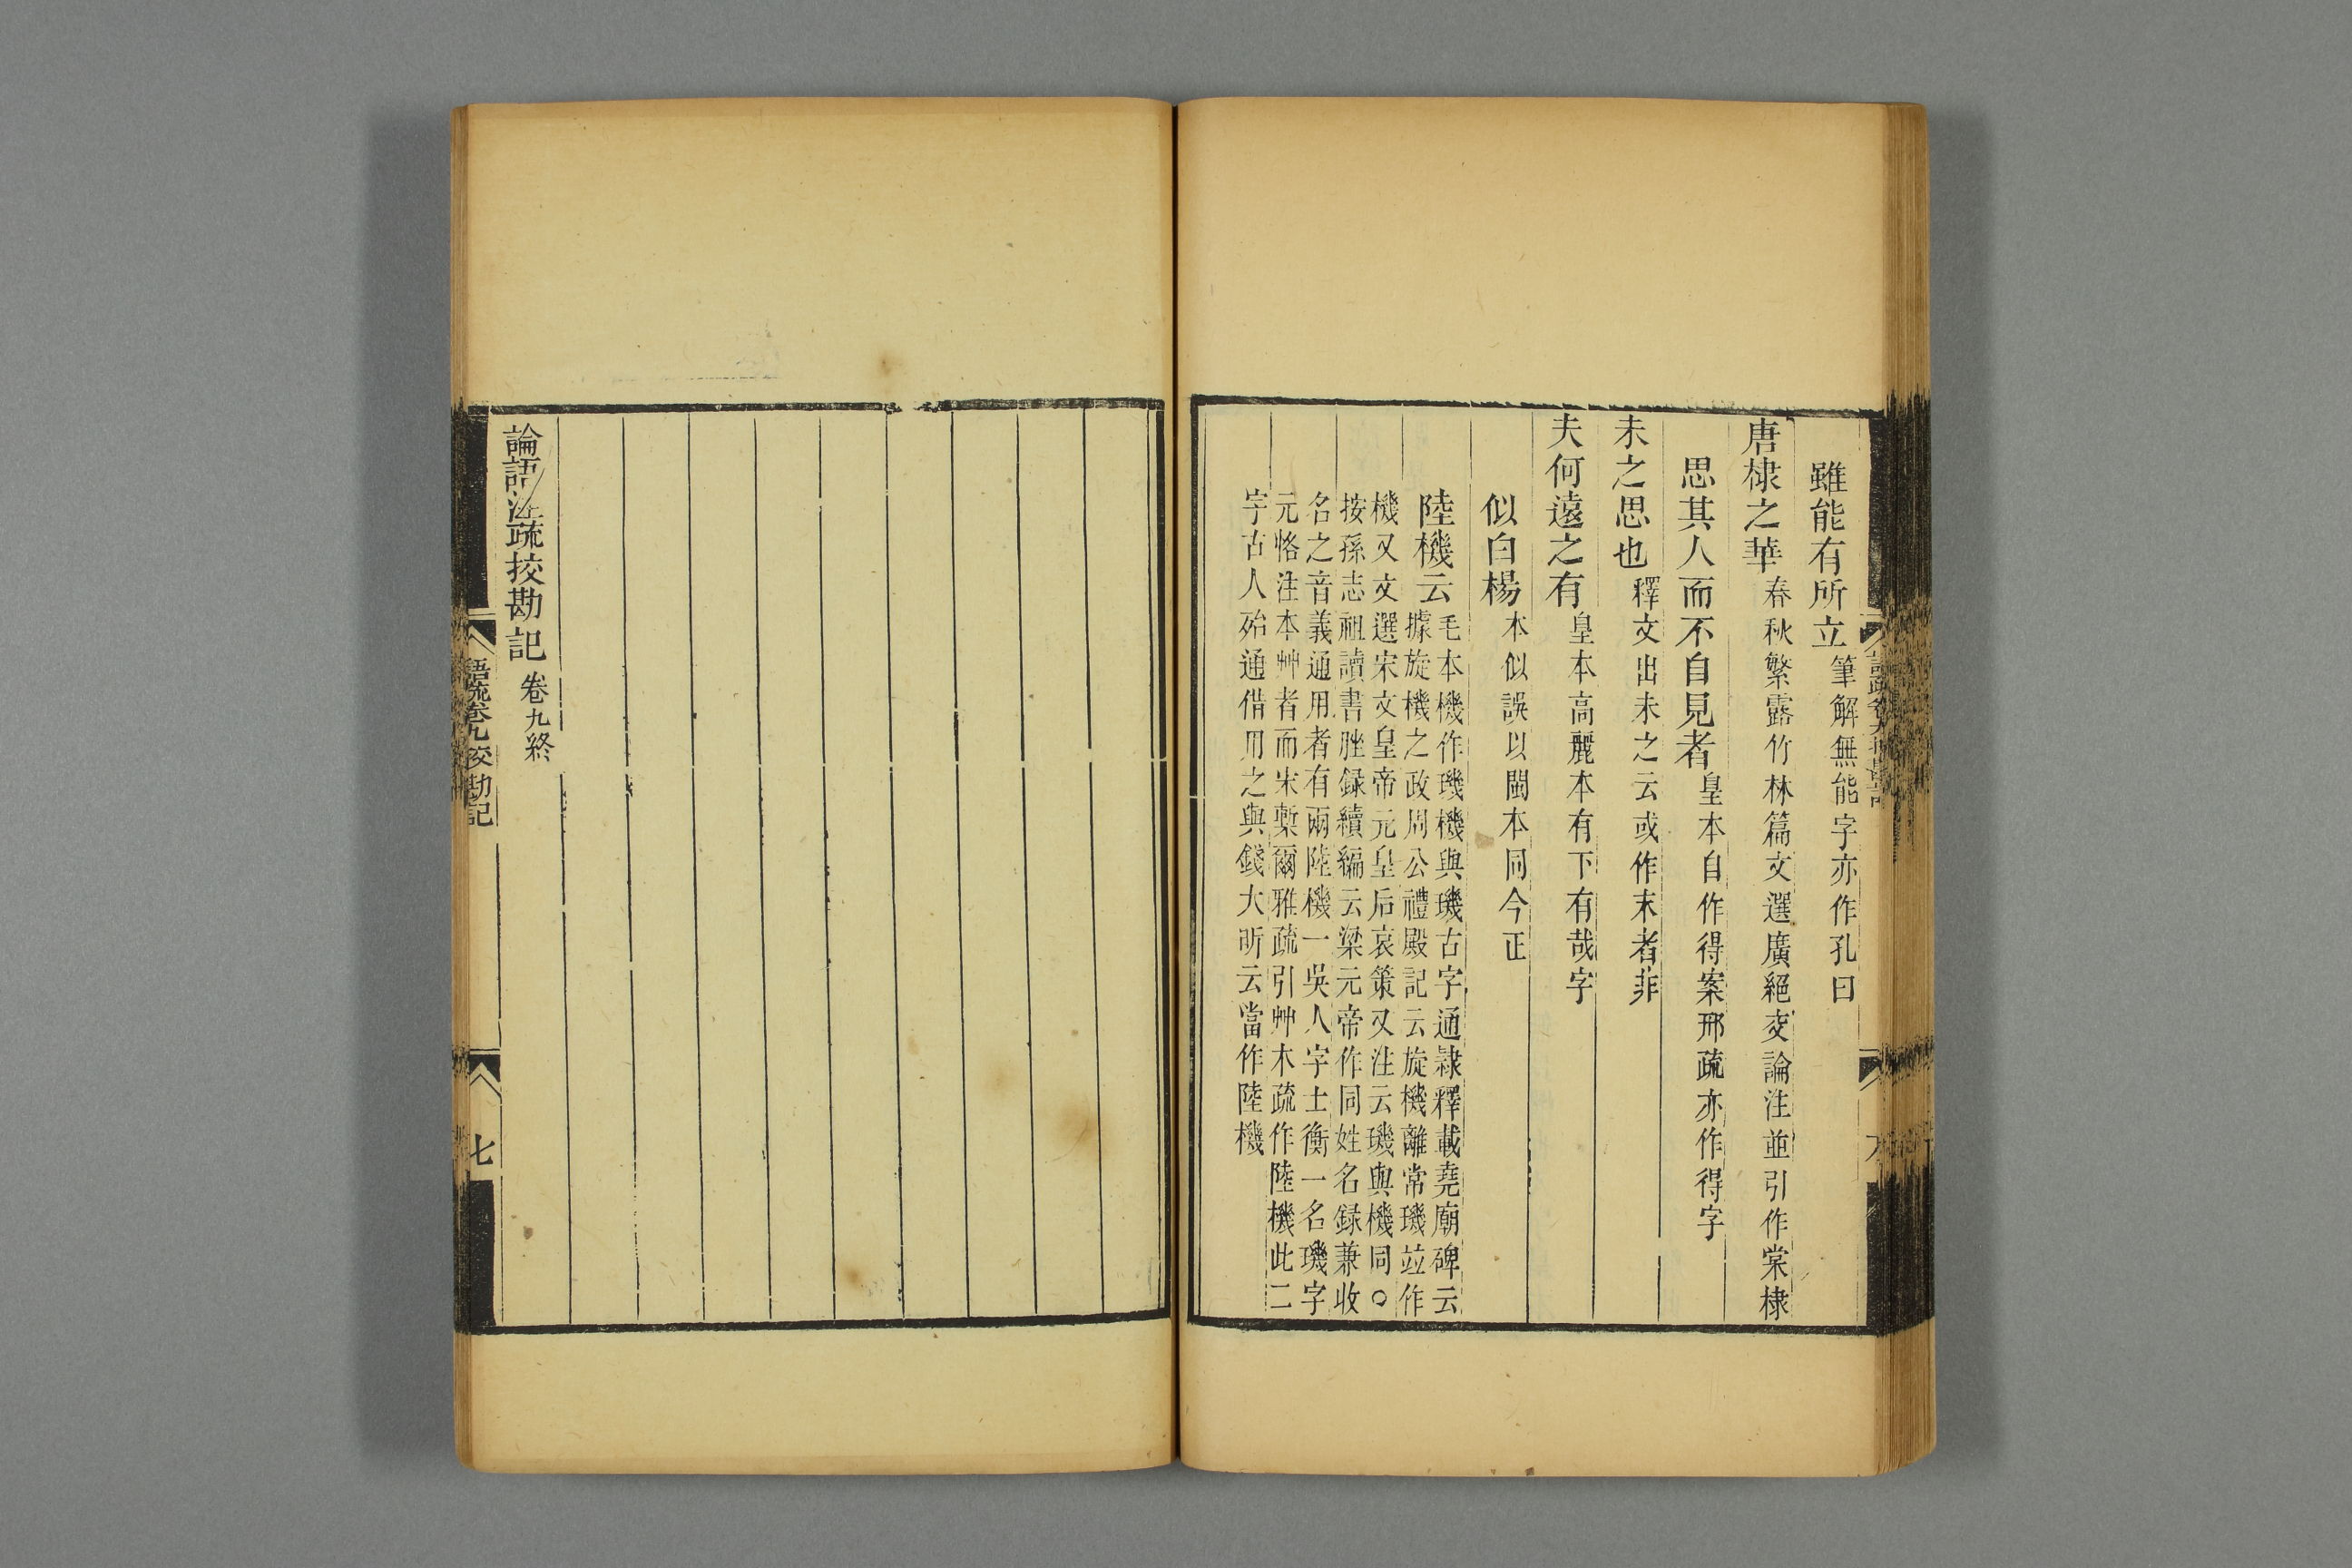 雖能有所立筆解無能字亦作孔曰
唐棣之華春秋繁露竹林篇文選廣絕交論注並引作棠棣
思其人而不自見者皇本自作得案邢疏亦作得字
未之思也釋文出未之云或作末者非
夫何遠之有皇本高麗本有下有哉字
似白楊本似誤以閩本同今正
陸機云毛本機作璣機與璣古字通隸釋載堯廟碑云
據旋機之政周公禮殿記云旋機離常璣竝作
機又文選宋文皇帝元皇后哀策又注云璣與機同○
按孫志祖讀書脞録續編云梁元帝作同姓名録兼收
名之音義通用者有兩陸機一吳人字士衡一名璣字
元恪注本艸者而宋槧爾雅疏引艸木疏作陸機此二
字古人殆通借用之與錢大昕云當作陸機
論語注疏挍勘記 卷九終
語疏卷九校勘記
七